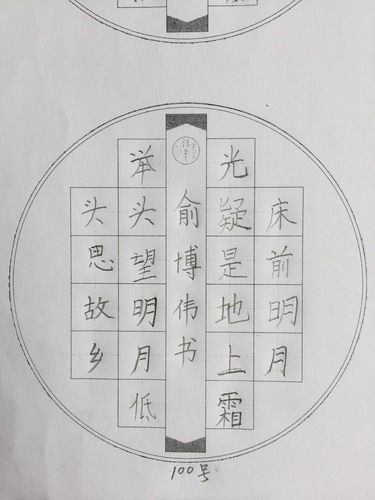 床前明月
光疑是地上霜
俞博伟书
举头望明月低
头思故乡
100号